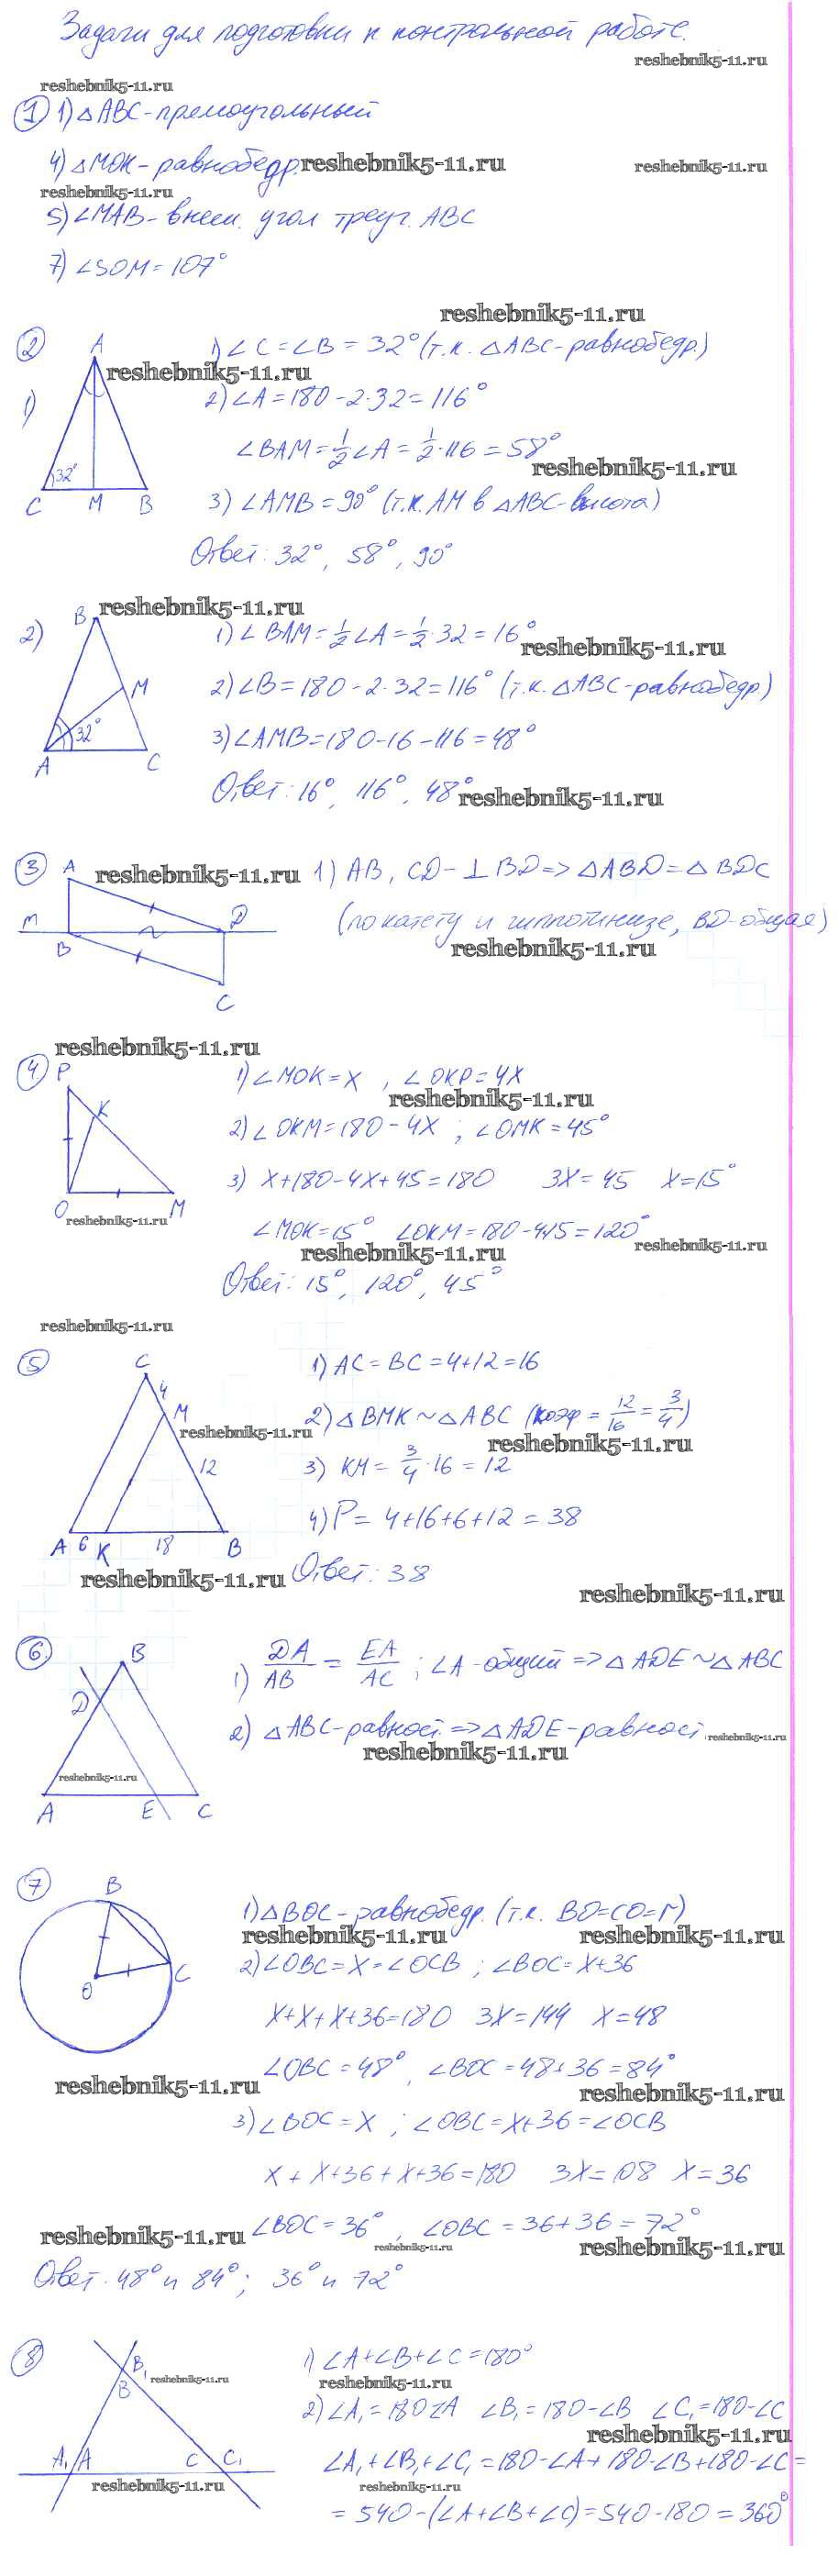 Задачи для подготовки к контрольной работе.
reshebnik5-11.ru
reshebnik5-11.ru
① 1) △ABC - прямоугольный
4) △MOK - равнобедр. reshebnik5-11.ru reshebnik5-11.ru
reshebnik5-11.ru
5) ∠MAB - внеш. угол треуг. ABC
7) ∠SOM = 107°
reshebnik5-11.ru
② A 1) ∠C = ∠B = 32° (т.к. △ABC - равнобедр.)
reshebnik5-11.ru
1) 2) ∠A = 180 - 2·32 = 116°
∠BAM = 1/2 ∠A = 1/2 · 116 = 58°
32° reshebnik5-11.ru
C M B 3) ∠AMB = 90° (т.к. AM в △ABC - высота)
Ответ: 32°, 58°, 90°
B reshebnik5-11.ru
2) 1) ∠BAM = 1/2 ∠A = 1/2 · 32 = 16°
reshebnik5-11.ru
M 2) ∠B = 180 - 2·32 = 116° (т.к. △ABC - равнобедр)
32° 3) ∠AMB = 180 - 16 - 116 = 48°
A C
Ответ: 16°, 116°, 48° reshebnik5-11.ru
③ A reshebnik5-11.ru 1) AB, CD - ⊥ BD => △ABD = △BDC
M D (по катету и гиппотинизе, BD - общая)
B reshebnik5-11.ru
C
reshebnik5-11.ru
④ P 1) ∠MOK = x , ∠OKP = 4x
K reshebnik5-11.ru
2) ∠OKM = 180 - 4x ; ∠OMK = 45°
3) x + 180 - 4x + 45 = 180 3x = 45 x = 15°
O M
reshebnik5-11.ru
∠MOK = 15° ∠OKM = 180 - 4·15 = 120°
reshebnik5-11.ru reshebnik5-11.ru
Ответ: 15°, 120°, 45°
reshebnik5-11.ru
⑤ C 1) AC = BC = 4+12 = 16
4 M 2) △BMK ~ △ABC (коэф = 12/16 = 3/4)
reshebnik5-11.ru reshebnik5-11.ru
12 3) KM = 3/4 · 16 = 12
4) P = 4+16+6+12 = 38
A 6 K 18 B
reshebnik5-11.ru Ответ: 38
reshebnik5-11.ru
⑥ B 1) DA/AB = EA/AC ; ∠A - общий => △ADE ~ △ABC
D 2) △ABC - равност. => △ADE - равност. reshebnik5-11.ru
reshebnik5-11.ru
reshebnik5-11.ru
A E C
⑦ B
1) △BOC - равнобедр. (т.к. BO = CO = r)
reshebnik5-11.ru reshebnik5-11.ru
C O 2) ∠OBC = x = ∠OCB ; ∠BOC = x+36
x+x+x+36 = 180 3x = 144 x = 48
∠OBC = 48°, ∠BOC = 48+36 = 84°
reshebnik5-11.ru reshebnik5-11.ru
3) ∠BOC = x ; ∠OBC = x+36 = ∠OCB
x + x+36 + x+36 = 180 3x = 108 x = 36
∠BOC = 36° , ∠OBC = 36+36 = 72°
reshebnik5-11.ru reshebnik5-11.ru reshebnik5-11.ru
Ответ. 48° и 84°; 36° и 72°
⑧ B₁ 1) ∠A+∠B+∠C = 180°
reshebnik5-11.ru reshebnik5-11.ru
B 2) ∠A₁ = 180-∠A ∠B₁ = 180-∠B ∠C₁ = 180-∠C
reshebnik5-11.ru
A₁ A C C₁ ∠A₁+∠B₁+∠C₁ = 180-∠A+180-∠B+180-∠C =
reshebnik5-11.ru reshebnik5-11.ru
= 540-(∠A+∠B+∠C) = 540-180 = 360°